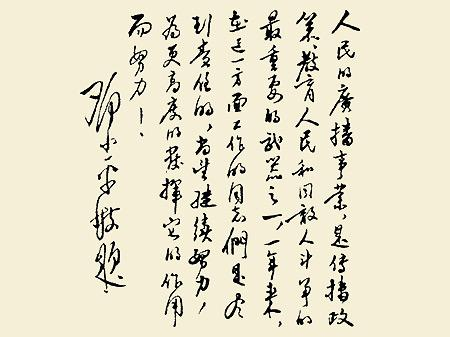 人民的廣播事業，是传播政
策、教育人民和同敵人斗爭的
最重要的武器之一，一年来，
在这一方面工作的同志們是尽
到责任的，尚望继续努力，
為更高度的發揮它的作用
而努力！
邓小平敬题